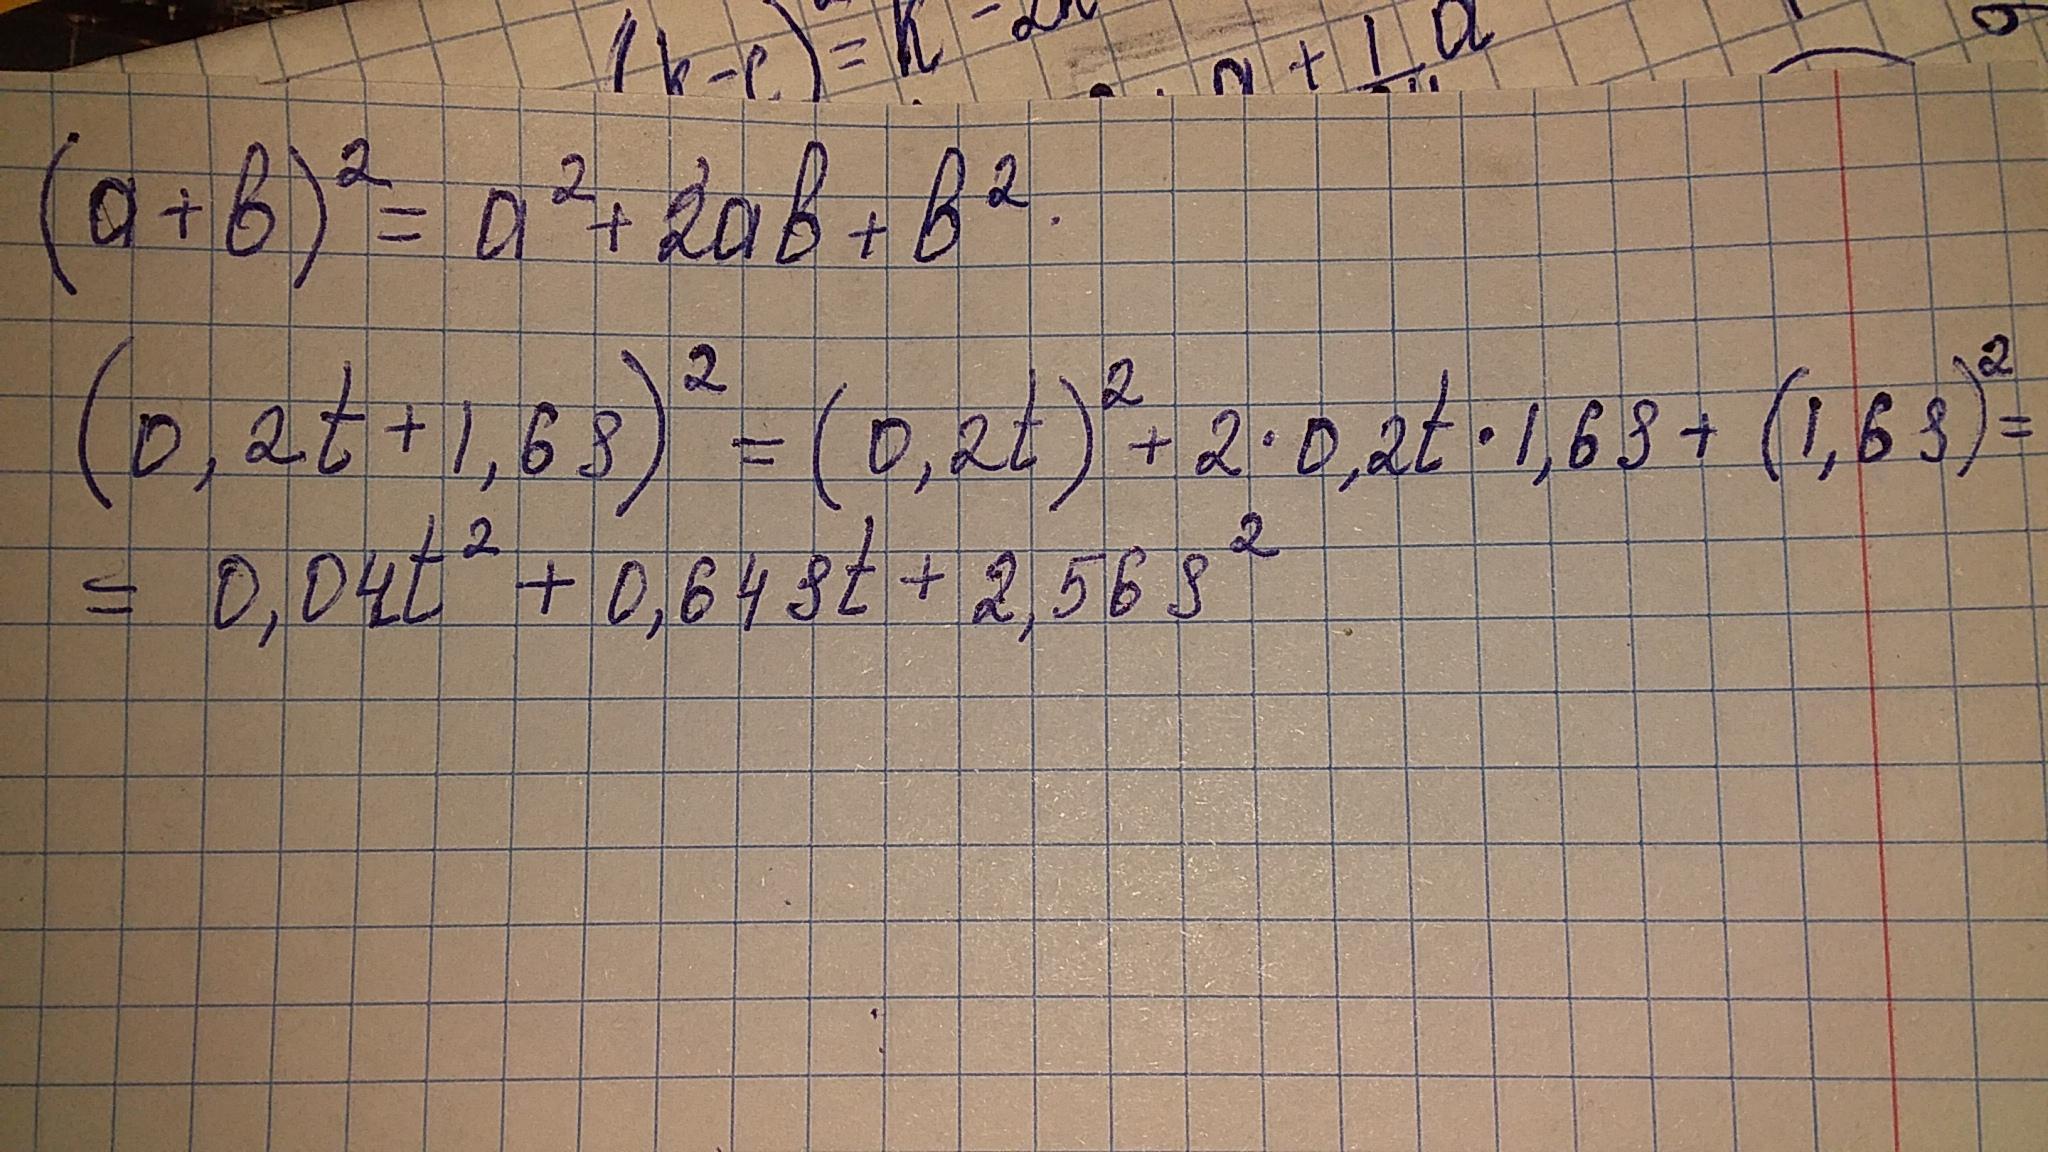 (k-
)² = k - 2k
a + 1 a
(a+b)² = a² + 2ab + b².
(0,2t+1,6s)² = (0,2t)² + 2·0,2t·1,6s + (1,6s)² =
= 0,04t² + 0,64st + 2,56s²